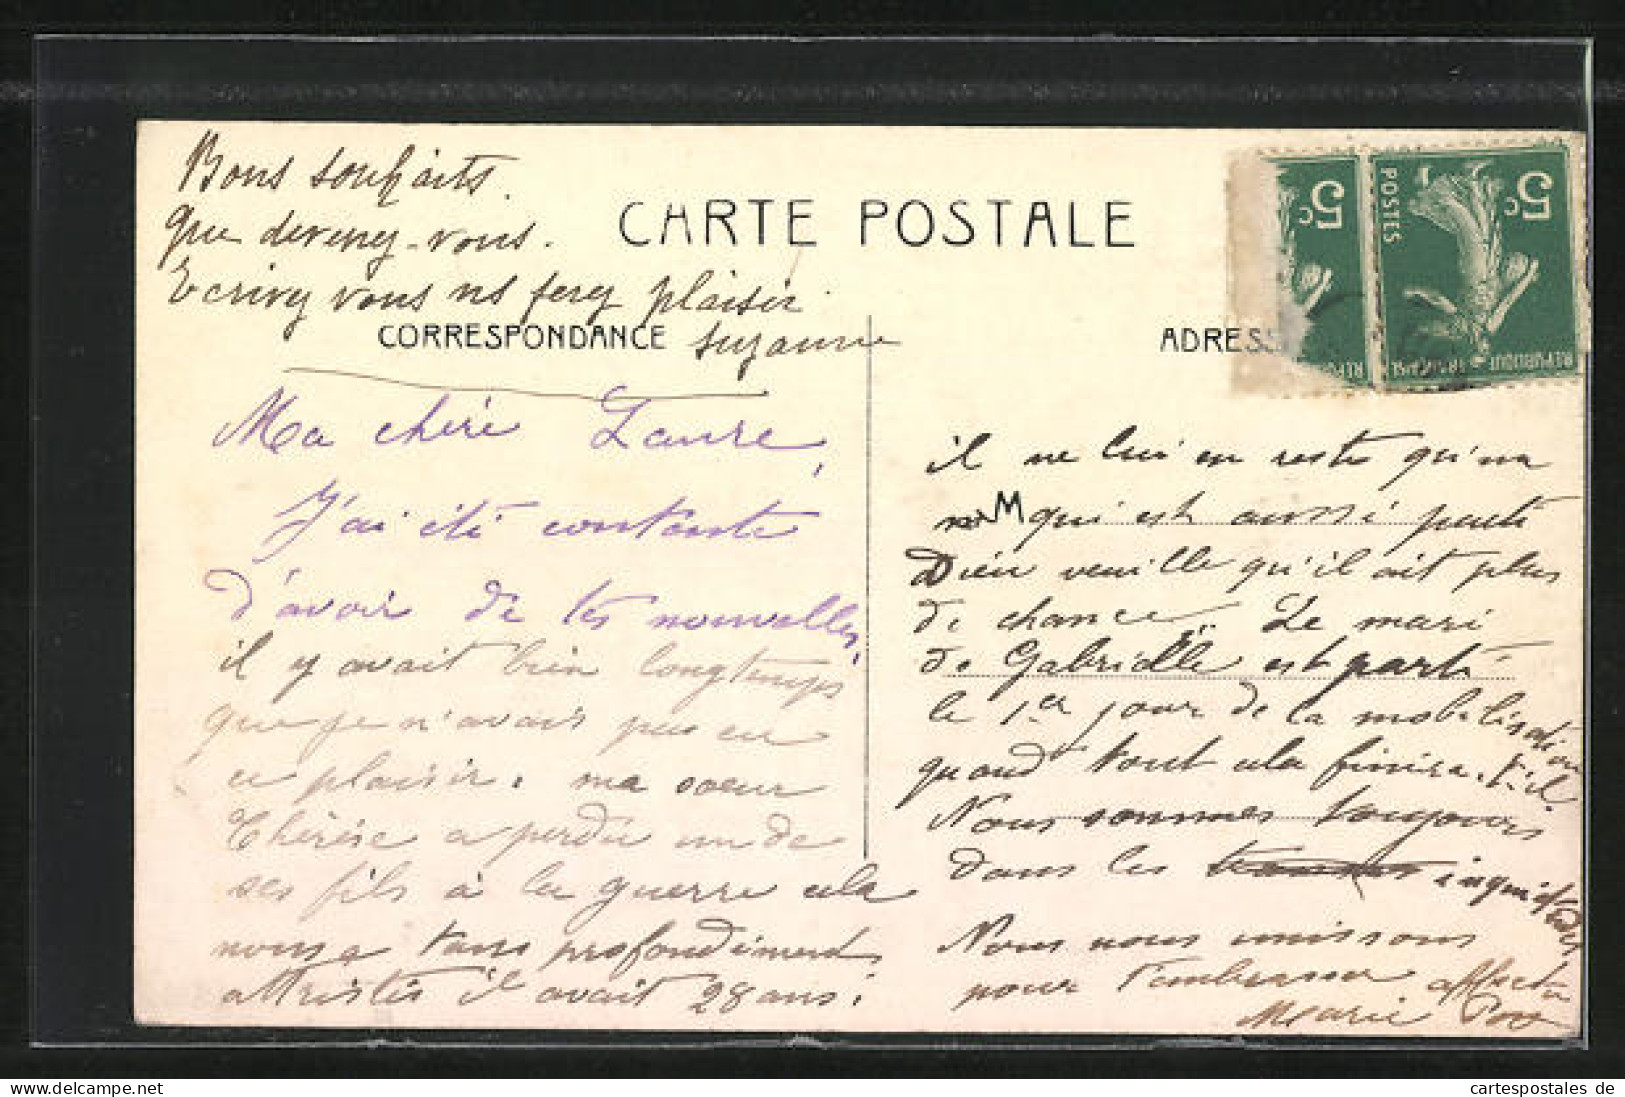 Bons souhaits.
Que devenez-vous.
Ecrivez vous ns ferez plaisir.
Suzanne
CARTE POSTALE
CORRESPONDANCE
ADRESS
5c
5c
POSTES
REPUBLIQUE FRANCAISE
REPU
Ma chère Laure,
J'ai été contente
d'avoir de tes nouvelles,
il y avait bien longtemps
que je n'avais pas eu
ce plaisir. ma soeur
Thérèse a perdu un de
ses fils à la guerre cela
nous a tous profondément
attristés il avait 28 ans.
il ne lui en reste qu'un
M qui est aussi parti
Dieu veuille qu'il ait plus
de chance. Le mari
de Gabrielle est parti
le 1er jour de la mobilisation
quand tout cela finira-t-il.
Nous sommes toujours
dans les inquiétudes
Nous nous unissons
pour t'embrasser affect
Marie
cartespostales de